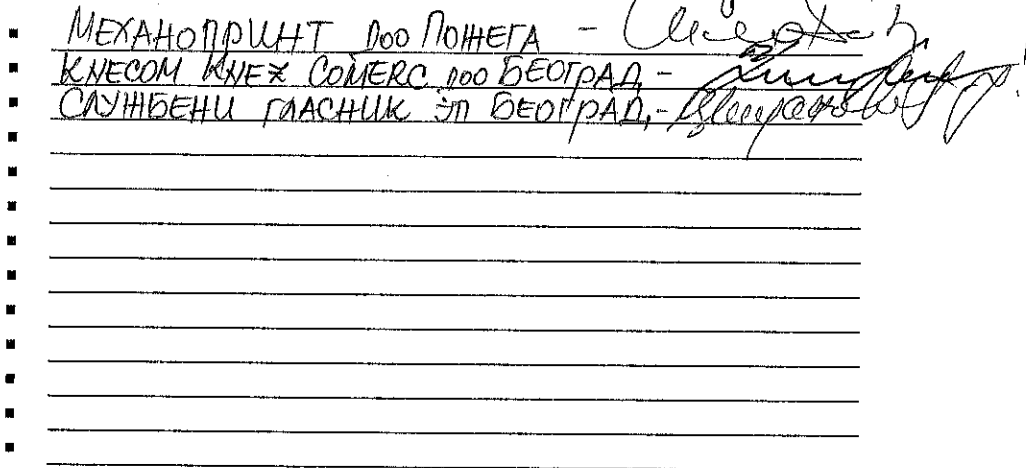 МЕХАНОПРИНТ ДОО ПОЖЕГА -
KNECOM KNEŽ COMERC ДОО БЕОГРАД, -
СЛУЖБЕНИ ГЛАСНИК ЈП БЕОГРАД, -